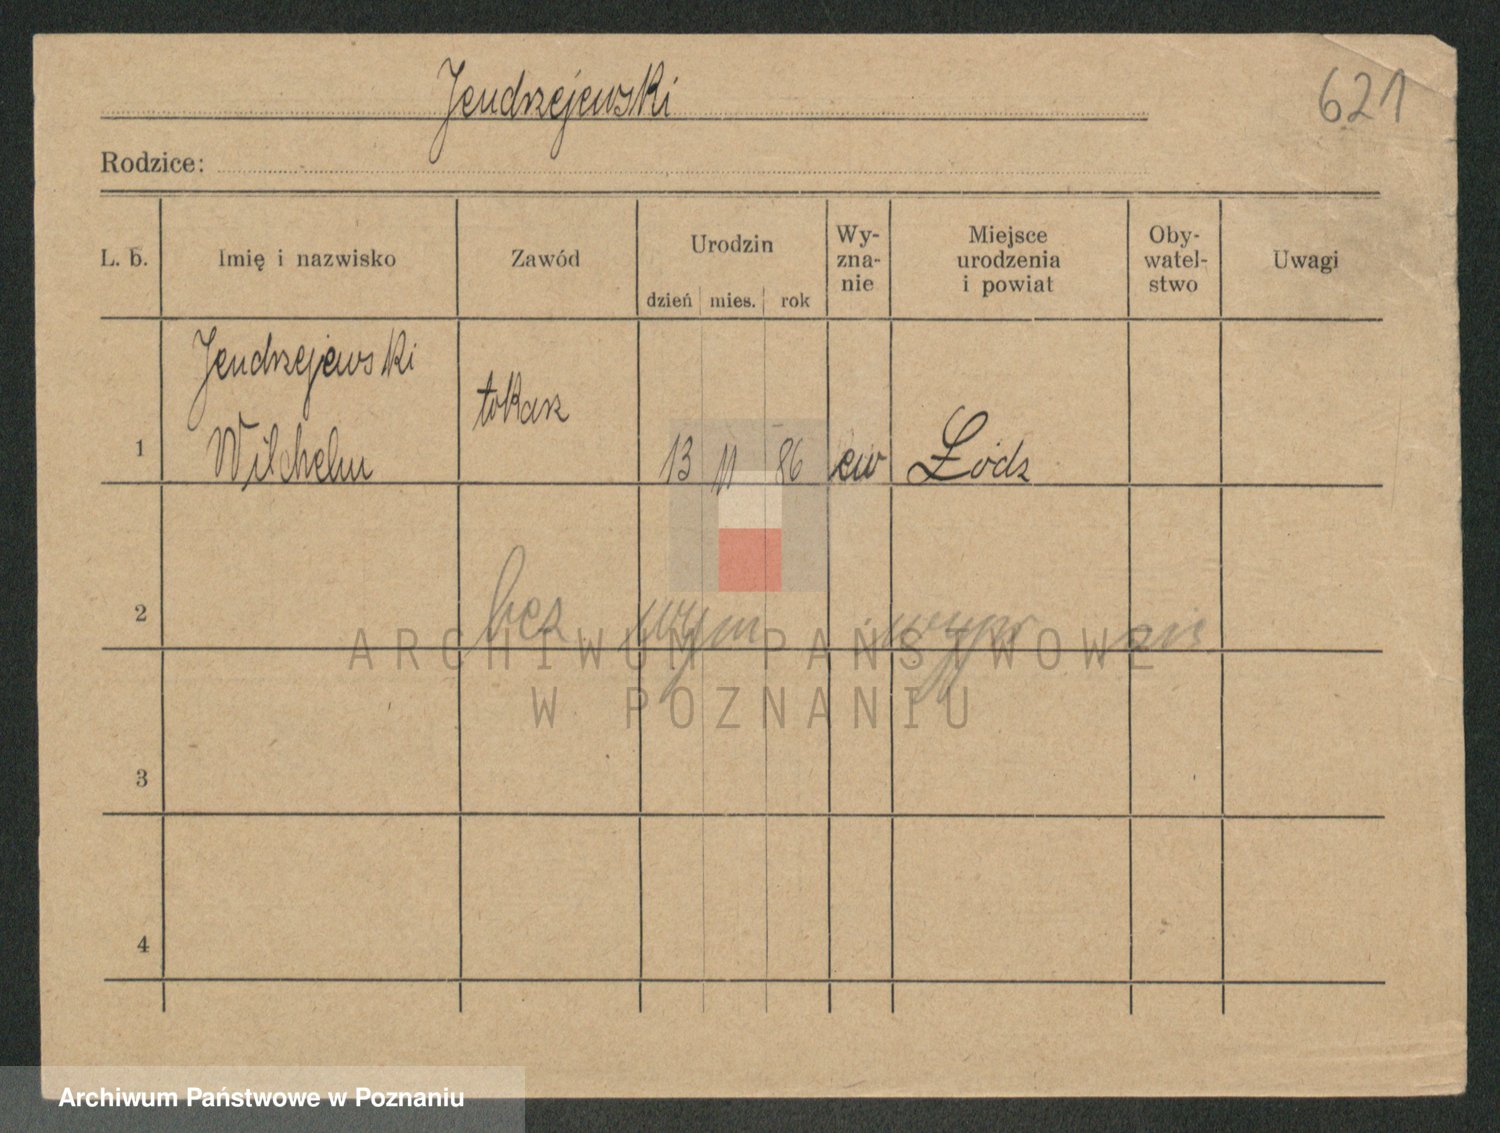 Jendrzejewski
621
Rodzice:
L. b.
Imię i nazwisko
Zawód
Urodzin
dzień mies. rok
Wy-
zna-
nie
Miejsce
urodzenia
i powiat
Oby-
watel-
stwo
Uwagi
1
Jendrzejewski
Wilchelm
tokarz
13 11 86
ew
Łódz
2
bez wym
3
4
ARCHIWUM PAŃSTWOWE
W POZNANIU
Archiwum Państwowe w Poznaniu